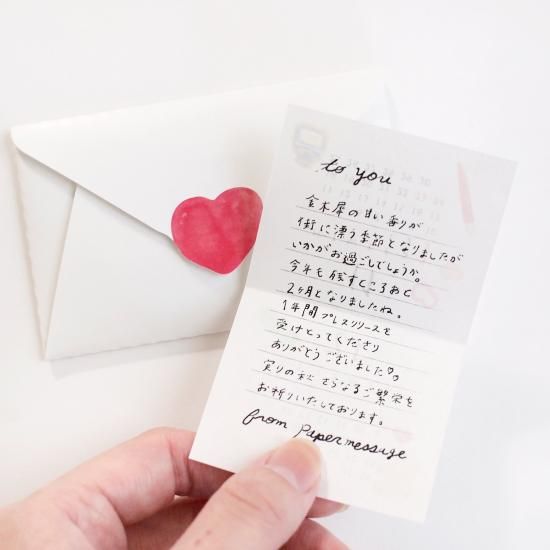 to you
金木犀の甘い香りが
街に漂う季節となりましたが
いかがお過ごしでしょうか。
今年も残すところあと
2ヶ月となりましたね。
1年間プレスリリースを
受けとってくださり
ありがとうございました♡
実りの秋 さらなるご繁栄を
お祈りいたしております。
from Papermessage